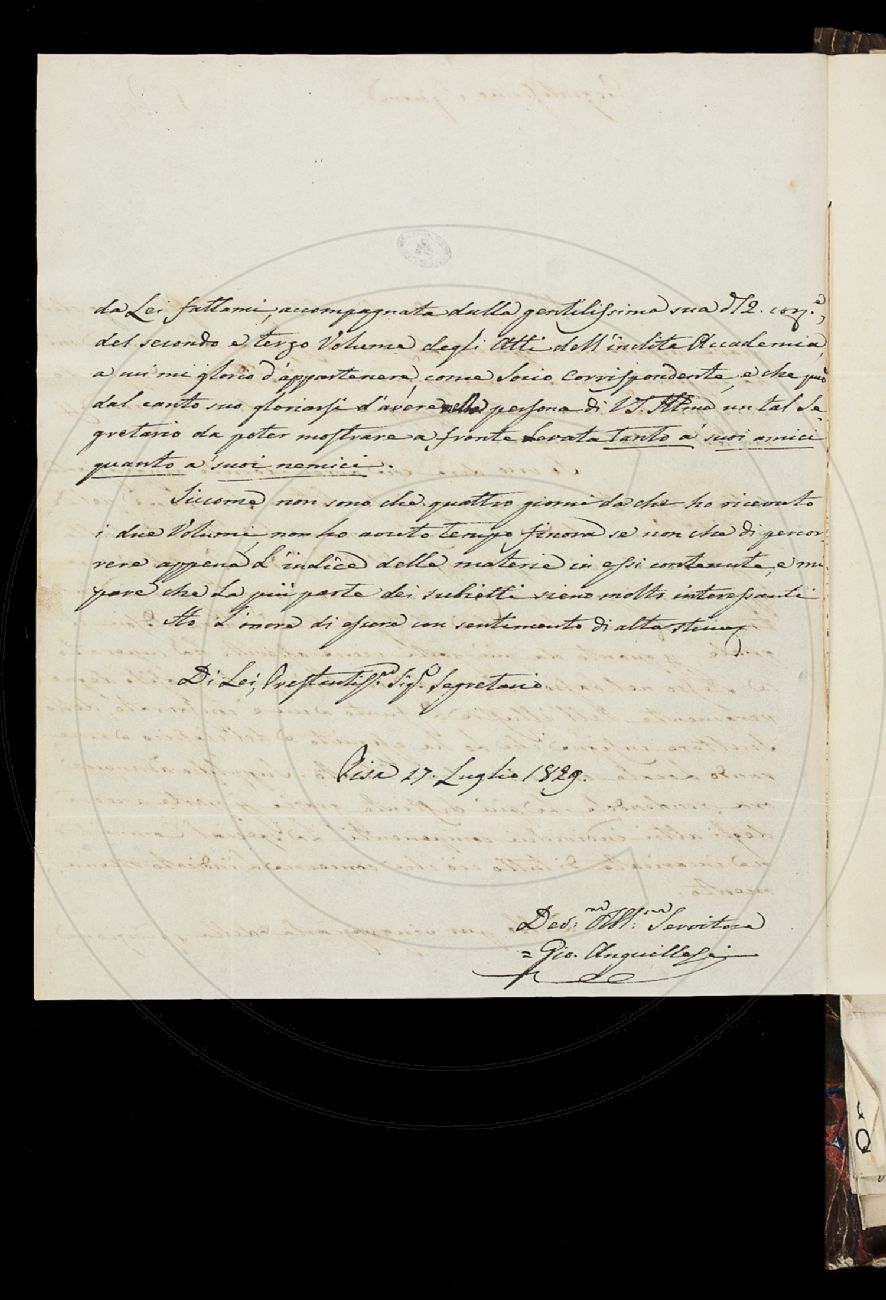 da Lei fattami, accompagnata dalla gentilissima sua d' 12. corr.e,
del secondo e terzo Volume degli Atti dell'inclita Accademia,
a cui mi glorio d'appartenere, come Socio Corrispondente, e che può
dal canto suo gloriarsi d'avere nella persona di V. S. Illma un tal Se
gretario da poter mostrare a fronte levata tanto a' suoi amici
quanto a' suoi nemici.
Siccome non sono che quattro giorni da che ho ricevuto
i due Volumi, non ho avuto tempo finora se non che di percor
rere appena L'indice delle materie in essi contenute, e mi
pare che La più parte dei subietti sieno molto interessanti.
Ho L'onore di essere con sentimento di alta stima
Di Lei, Prestantiss.o Sig.r Segretario
Pisa 17. Luglio 1829.
Dev.mo Obb.mo Servitore
= Gio. Anguillesi